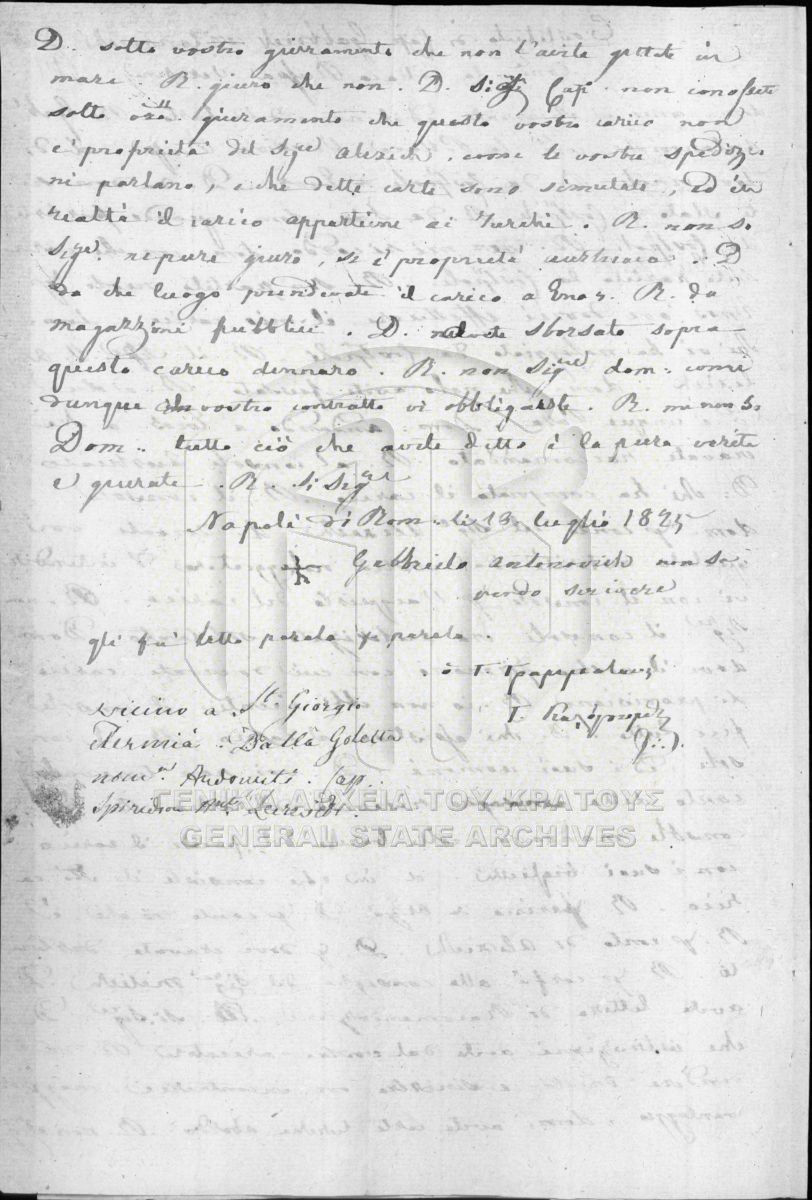 D. sotto vostro giuramento che non l'avete gettate in
mare R. giuro che non. D. Sigr Capn. non conoscete
sotto giuramento che questo vostro carico non
è proprietà del Sigre Alexich, come le vostre spedizio
ni parlano, e che dette carte sono simulate, ed in
realtà il carico appartiene ai Turchi. R. non so
Sigre. nepure giuro, se è proprietà turchesca. D
da che luogo prendevate il carico a Enos. R. da
magazzeni pubblici. D. sborsato sopra
questo carico dennaro. R. non Sigre dom: come
dunque vostro contratto vi obbligaste. R. me non so
Dom: tutto ciò che avete detto è la pura verità
e giurate. R. Si Sigre
Napoli di Rom. li 13 luglio 1825
Gabbrielo Antonovich non sa
vendo scrivere
gli fù letto parola p parola.
ὁ Γ.
Γ.
vicino a St. Giorgio
Fermia: Dalla Goletta
nom. Cap.
Spiridion
ΓΕΝΙΚΑ ΑΡΧΕΙΑ ΤΟΥ ΚΡΑΤΟΥΣ
GENERAL STATE ARCHIVES